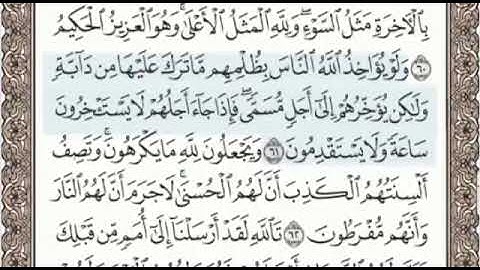 بِٱلۡأٓخِرَةِ مَثَلُ ٱلسَّوۡءِۖ وَلِلَّهِ ٱلۡمَثَلُ ٱلۡأَعۡلَىٰۚ وَهُوَ ٱلۡعَزِيزُ ٱلۡحَكِيمُ
٦٠ وَلَوۡ يُؤَاخِذُ ٱللَّهُ ٱلنَّاسَ بِظُلۡمِهِم مَّا تَرَكَ عَلَيۡهَا مِن دَآبَّةٖ
وَلَٰكِن يُؤَخِّرُهُمۡ إِلَىٰٓ أَجَلٖ مُّسَمّٗىۖ فَإِذَا جَآءَ أَجَلُهُمۡ لَا يَسۡتَـٔۡخِرُونَ
سَاعَةٗ وَلَا يَسۡتَقۡدِمُونَ ٦١ وَيَجۡعَلُونَ لِلَّهِ مَا يَكۡرَهُونَۚ وَتَصِفُ
أَلۡسِنَتُهُمُ ٱلۡكَذِبَ أَنَّ لَهُمُ ٱلۡحُسۡنَىٰۚ لَا جَرَمَ أَنَّ لَهُمُ ٱلنَّارَ
وَأَنَّهُم مُّفۡرَطُونَ ٦٢ تَٱللَّهِ لَقَدۡ أَرۡسَلۡنَآ إِلَىٰٓ أُمَمٖ مِّن قَبۡلِكَ